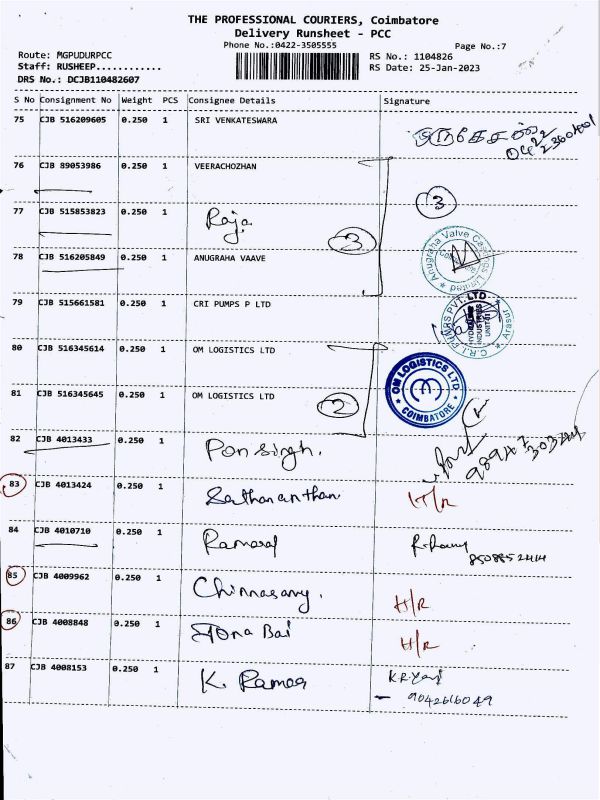 THE PROFESSIONAL COURIERS, Coimbatore
Delivery Runsheet - PCC
Phone No.:0422-3505555
Page No.:7
Route: MGPUDURPCC
Staff: RUSHEEP............
DRS No.: DCJB110482607
RS No.: 1104826
RS Date: 25-Jan-2023
S No Consignment No Weight PCS Consignee Details Signature
75 CJB 516209605 0.250 1 SRI VENKATESWARA
0422
76 CJB 89053986 0.250 1 VEERACHOZHAN
3
77 CJB 515853823 0.250 1 Raja
3
78 CJB 516205849 0.250 1 ANUGRAHA VAAVE
Anugraha Valve Castings Limited
79 CJB 515661581 0.250 1 CRI PUMPS P LTD
C.R.I. PUMPS PVT. LTD
INDUSTRIES
80 CJB 516345614 0.250 1 OM LOGISTICS LTD
OM LOGISTICS LTD
COIMBATORE
81 CJB 516345645 0.250 1 OM LOGISTICS LTD
2
82 CJB 4013433 0.250 1 Ponsingh.
83 CJB 4013424 0.250 1 Sathananthan H/R
84 CJB 4010710 0.250 1 Ramaraj
85 CJB 4009962 0.250 1 Chinnasamy. H/R
86 CJB 4008848 0.250 1 Mona Bai H/R
87 CJB 4008153 0.250 1 K. Ramar
9042616049